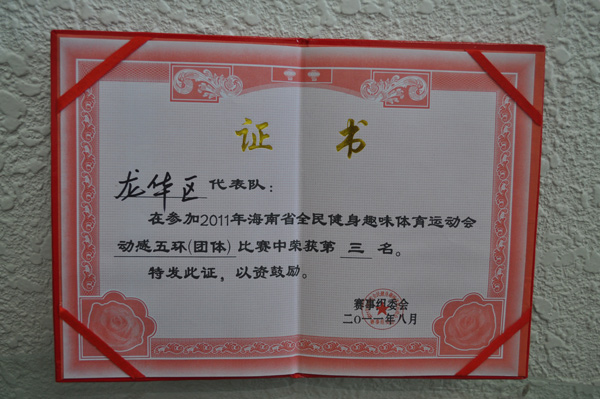 证书
龙华区 代表队：
在参加2011年海南省全民健身趣味体育运动会
动感五环(团体) 比赛中荣获第 三 名。
特发此证，以资鼓励。
赛事组委会
二〇一一年八月